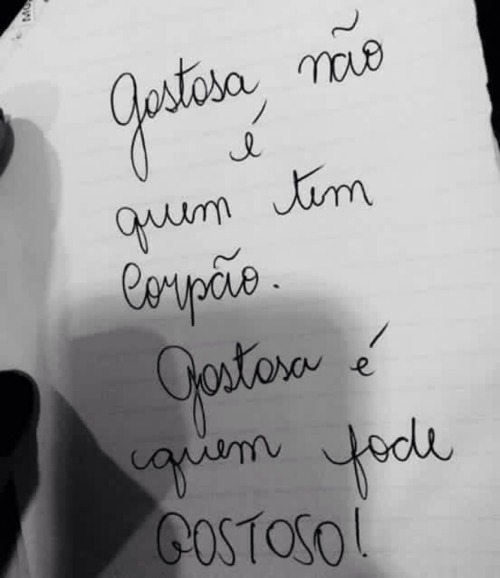 Gostosa não
é
quem tem
Corpão.
Gostosa é
quem fode
GOSTOSO!